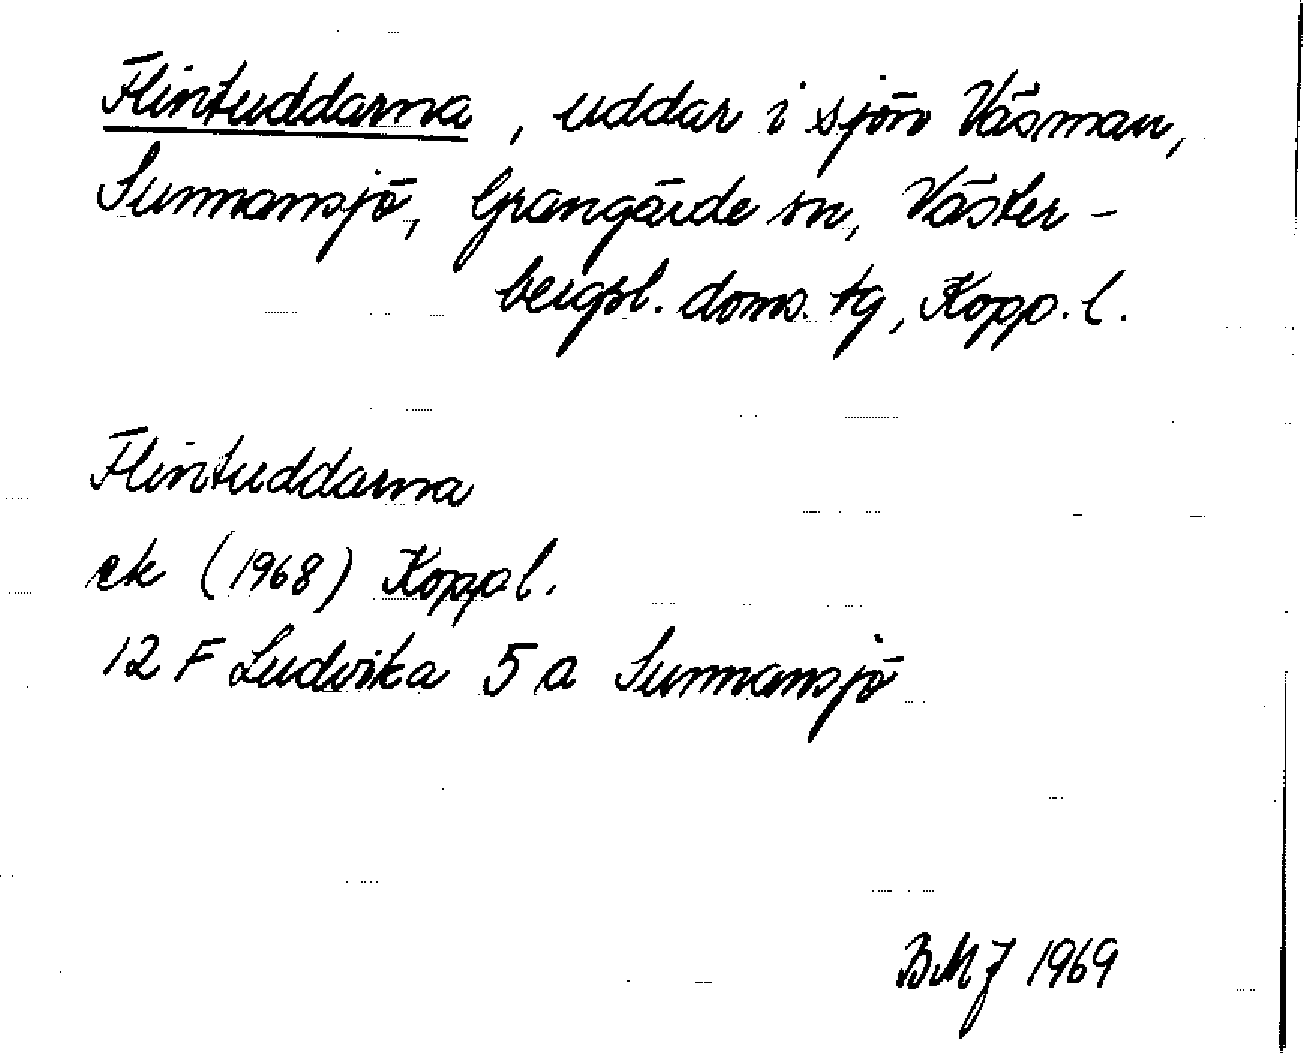 Flintuddarna, uddar i sjön Väsman,
Sunnansjö, Grangärde sn, Väster-
bergsl. doms. tg, Kopp. l.
Flintuddarna
ek (1968) Kopp l.
12 F Ludvika 5 a Sunnansjö
BMJ 1969